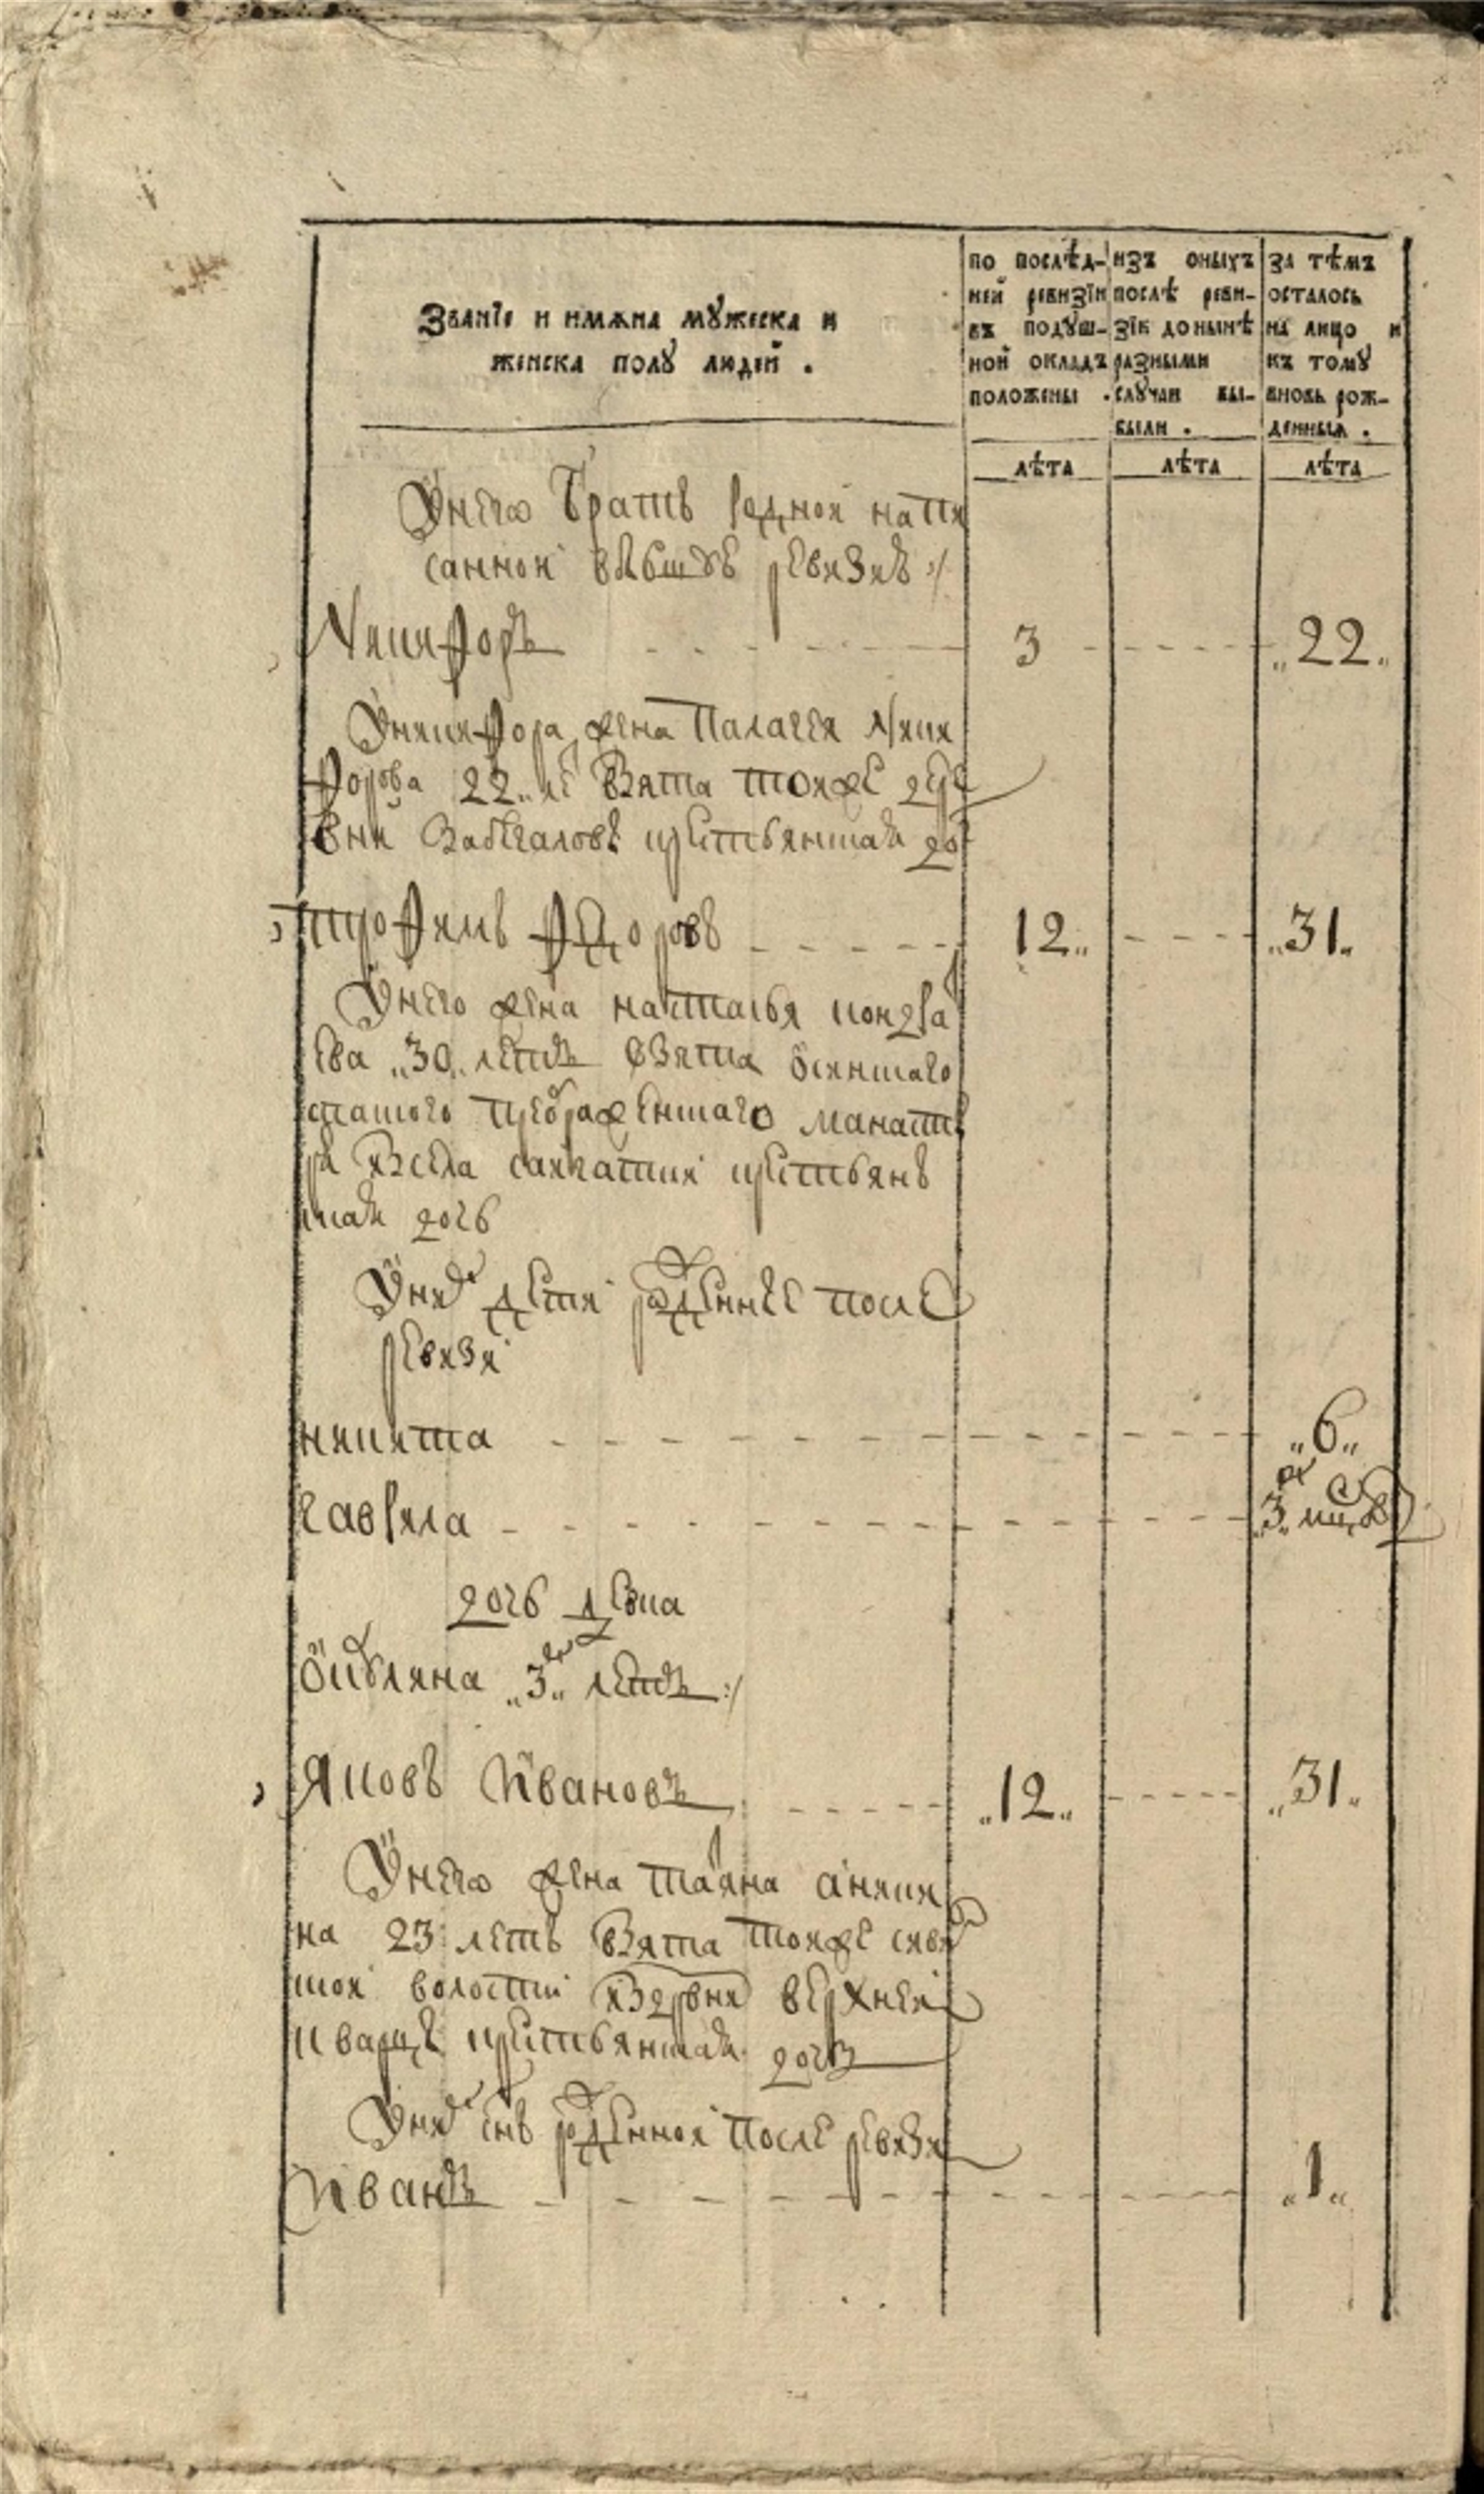 Званїе и имѧна мꙋжеска и
женска полꙋ людей .
по послѣд-
ней ревизїи
въ подꙋш-
ной окладъ
положены .
изъ оныхъ
послѣ реви-
зїи до нынѣ
разными
слꙋчаи вы-
были .
за тѣмъ
осталось
на лицо и
къ томꙋ
вновь рож-
денныѧ .
лѣта лѣта лѣта
Унего братъ родной напи
санной ревизиъ :/
Никифоръ 3 „22„
Уникифора жена Палагея Ники
форова 22 ле взята тояже дере
вни крестьянская до
трофимъ Федоровъ 12„ „31„
Унего жена наталья кондра
ева „30„ летъ взята
преображенскаго манасты
ря изсела крестьянъ
ская дочь
Уних дети рожденные после
ревизи
никита „6„
гаврила „3„
дочь девка
Оульяна „3х„ летъ :/
Яковъ Ивановъ „12„ „31„
Унего жена татьяна аники
на 23 летъ взята тояже
волости издревни верхней
крестьянская дочь
Уних снъ рожденной после ревизи
Иванъ „1„